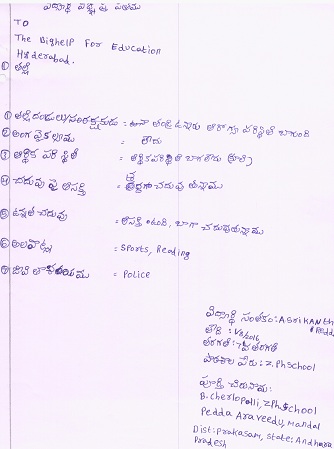 విద్యార్థి విద్య పై పఠము
TO
The Bighelp For Education
Hyderabad.
① తల్లి
① తల్లిదండ్రులు/సంరక్షకుడు = తండ్రి ఉన్నారు ఆరోగ్య పరిస్థితి బాగుంది
② అంగ వైకల్యము = లేదు
③ ఆర్థిక పరిస్థితి = ఆర్థికపరిస్థితి బాగలేదు (కూలి)
④ చదువు పై ఆసక్తి = శ్రద్ధగా చదువు తున్నాము
⑤ ఉన్నత చదువు = ఆసక్తి ఉంది, బాగా చదువుతున్నాము
⑥ అలవాట్లు = Sports, Reading
⑦ జీవితాశయము = Police
విద్యార్థి సంతకం: A SriKANth
Redd
తేది: 1/8/2016
తరగతి: 7వ తరగతి
పాఠశాల పేరు: Z.PhSchool
పూర్తి చిరునామ:
B. cherlopalli, ZPhSchool
Pedda Araveedu, Mandal
Dist: Prakasam, state: Andhara
Pradesh